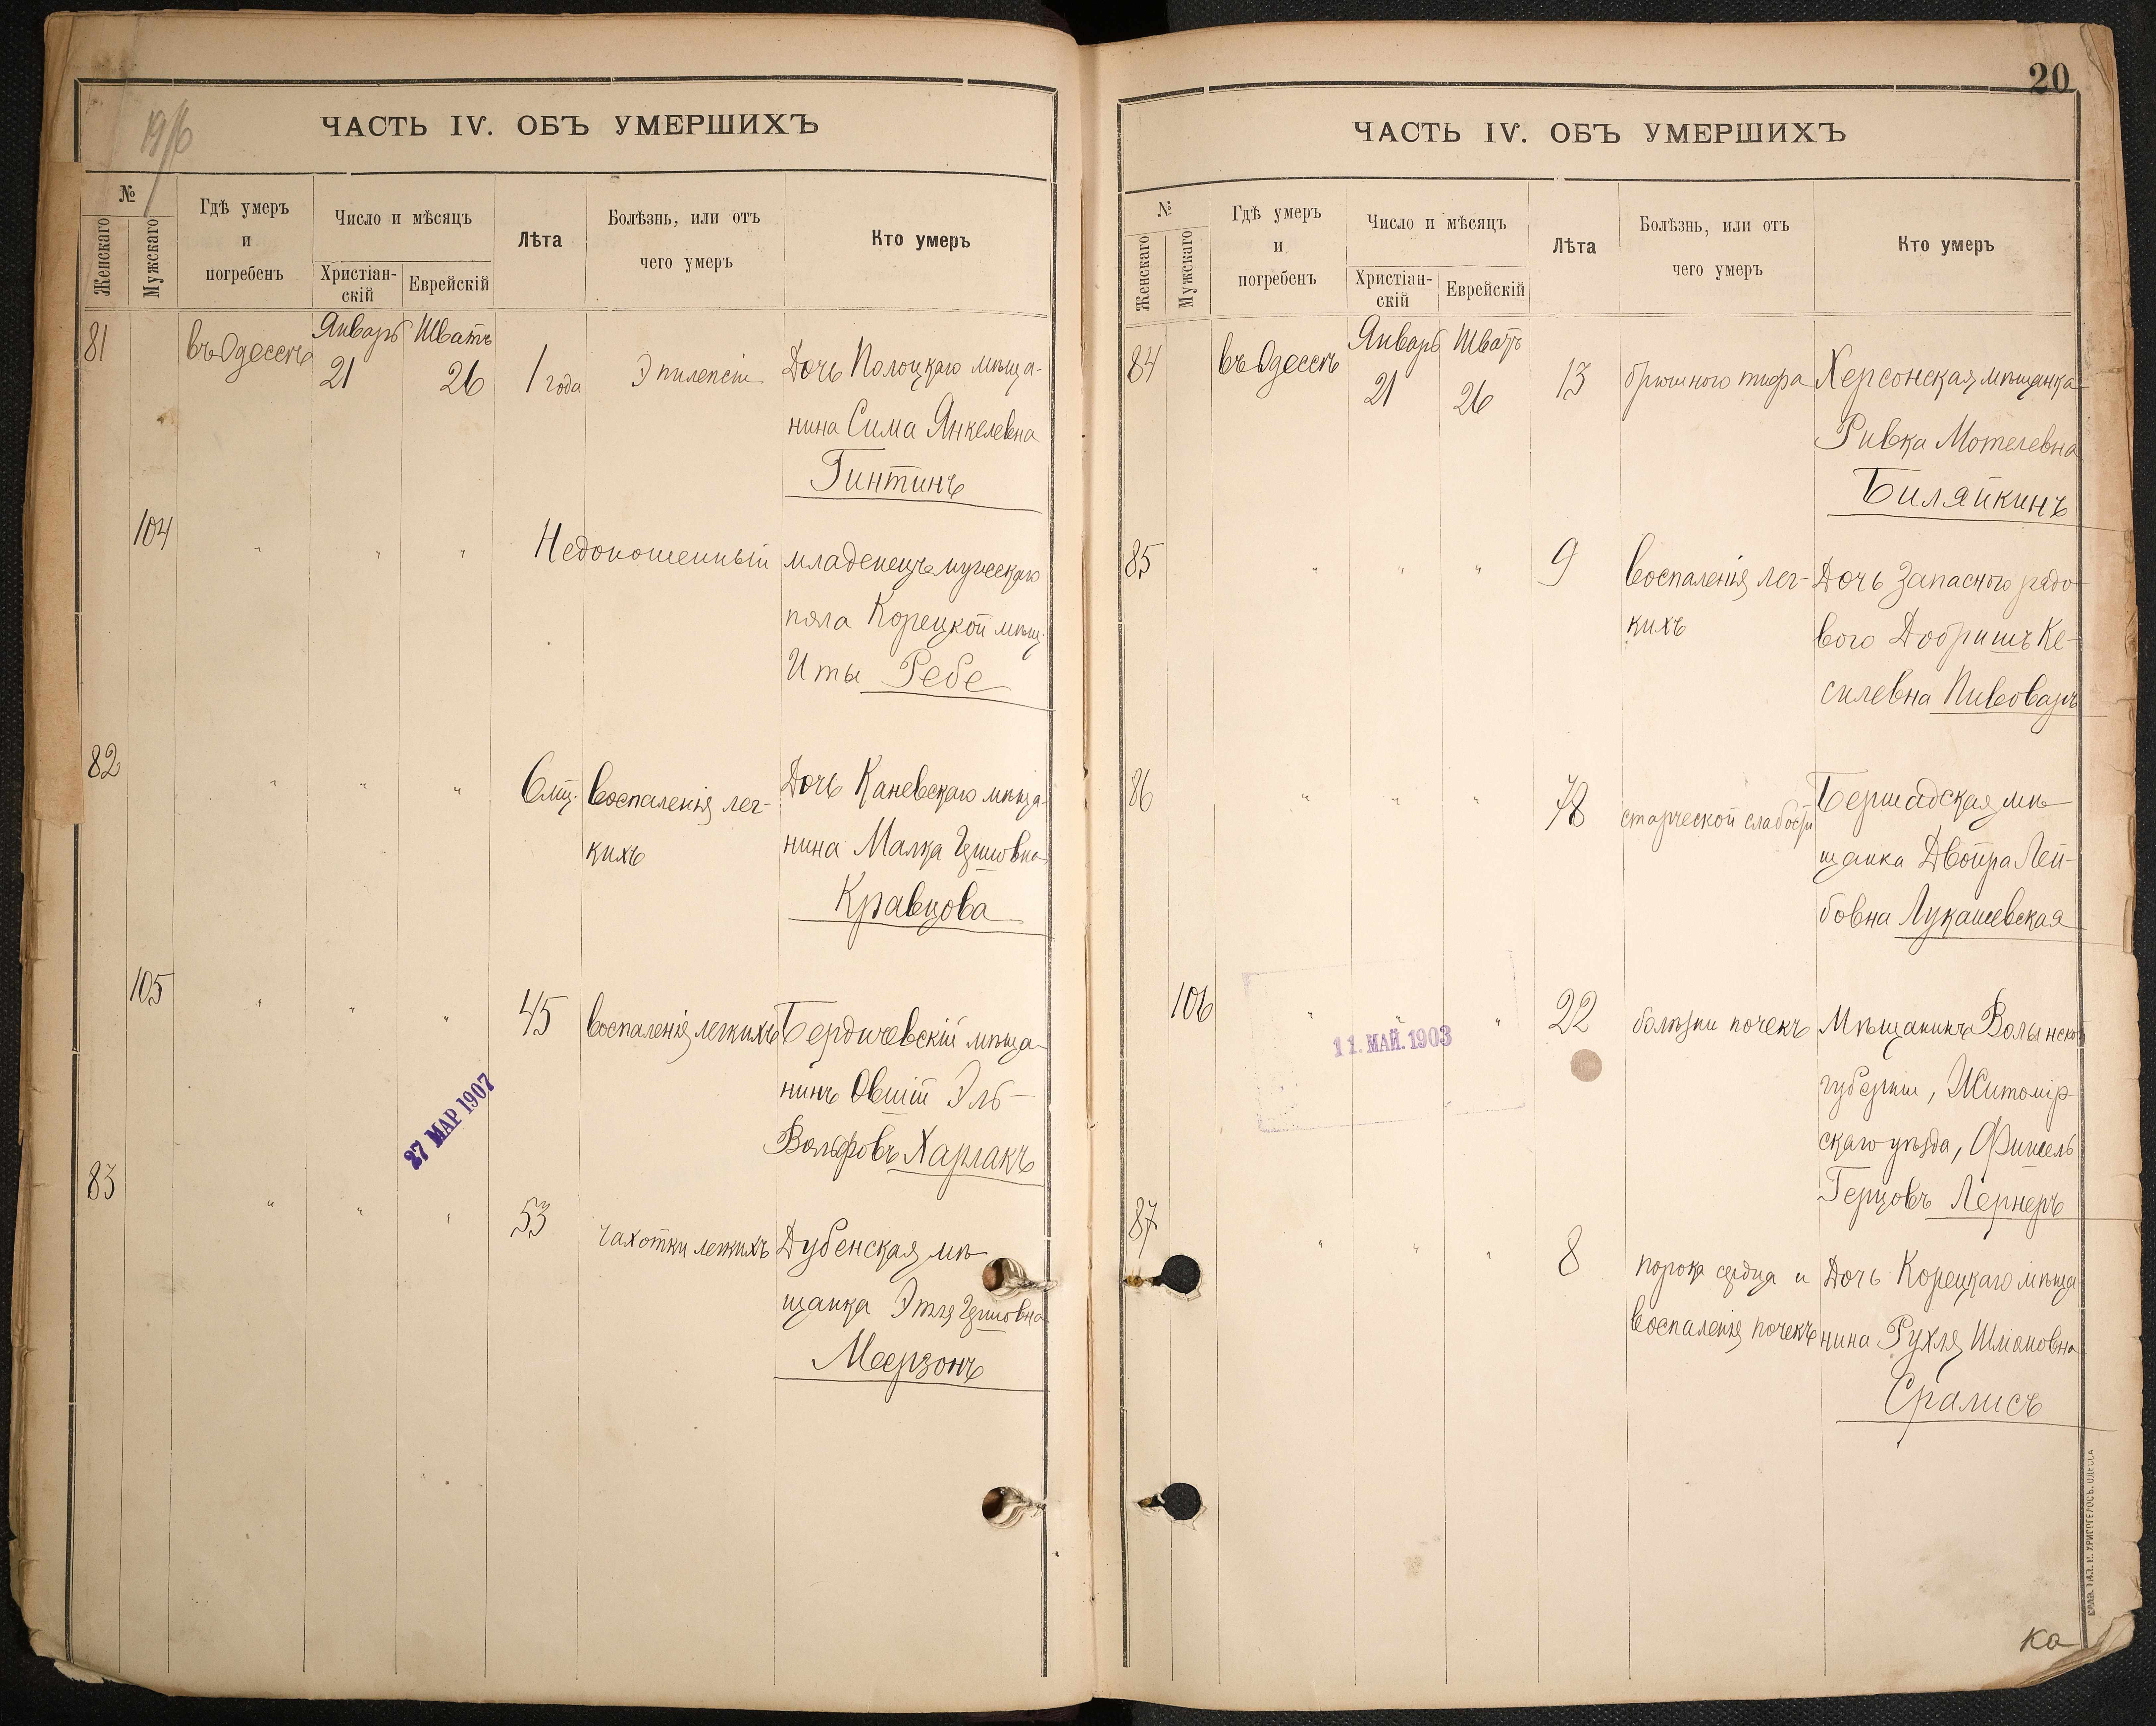 19/6
ЧАСТЬ IV. ОБЪ УМЕРШИХЪ
№
Женскаго
Мужскаго
Гдѣ умеръ
и
погребенъ
Число и мѣсяцъ
Христіан-
скій
Еврейскій
Лѣта
Болѣзнь, или отъ
чего умеръ
Кто умеръ
81 въ Одессѣ Январь 21 Шватъ 26 1 года Эпилепсіи Дочь Полоцкаго мѣща-
нина Сима Янкелевна
Гинтинъ
104 " " " Недоношенный младенецъ мужескаго
пола Корецкой мѣщ.
Иты Ребе
82 " " " 6 мц. Воспаленія лег- Дочь Каневскаго мѣща-
кихъ нина Малка Цшовна
Кравцова
105 " " " 45 Воспаленія легкихъ Бердичевскій мѣща-
нинъ Овшій Эль-
Вольфовъ Харлакъ
27 МАР 1907
83 " " " 53 чахотки легкихъ Дубенская мѣ-
щанка Этля
Меерзонъ
20
ЧАСТЬ IV. ОБЪ УМЕРШИХЪ
№
Женскаго
Мужскаго
Гдѣ умеръ
и
погребенъ
Число и мѣсяцъ
Христіан-
скій
Еврейскій
Лѣта
Болѣзнь, или отъ
чего умеръ
Кто умеръ
84 въ Одессѣ Январь 21 Шватъ 26 13 брюшного тифа Херсонская мѣщанка
Ривка Мотелевна
Биляйкинъ
85 " " " 9 Воспаленія лег- Дочь запасного рядо-
кихъ вого Добришъ Ке-
силевна Пивоваръ
86 " " " 78 старческой слабости Бершадская мѣ-
щанка Двойра Лей-
бовна Лукашевская
106 " " " 22 болѣзни почекъ Мѣщанинъ Волынской
губерніи, Житомір
скаго уѣзда, Фишель
Герцовъ Лернеръ
11. МАЙ. 1903
87 " " " 8 порока сердца и Дочь Корецкаго мѣща
Воспаленія почекъ нина Рухля Шмановна
Сралисъ
ка